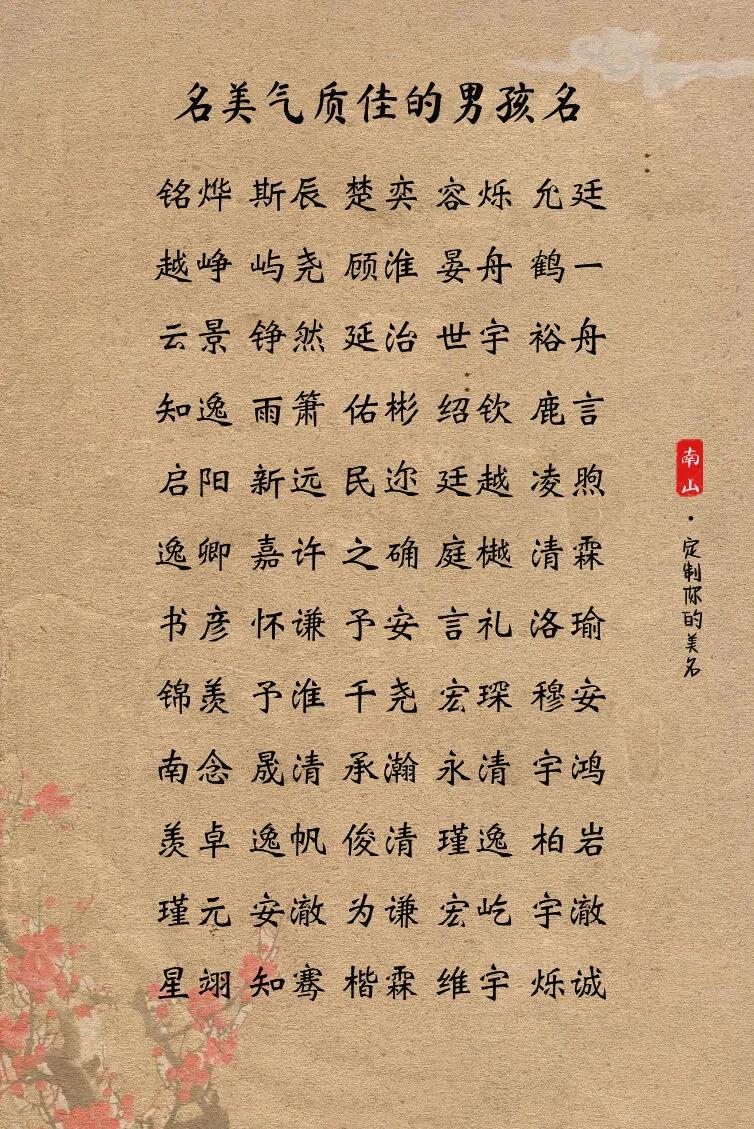 名美气质佳的男孩名
铭烨 斯辰 楚奕 容烁 允廷
越峥 屿尧 顾淮 晏舟 鹤一
云景 铮然 延治 世宇 裕舟
知逸 雨箫 佑彬 绍钦 鹿言
启阳 新远 民迩 廷越 凌煦
逸卿 嘉许 之确 庭樾 清霖
书彦 怀谦 予安 言礼 洛瑜
锦羡 予淮 千尧 宏琛 穆安
南念 晟清 承瀚 永清 宇鸿
羡卓 逸帆 俊清 瑾逸 柏岩
瑾元 安澈 为谦 宏屹 宇澈
星翊 知骞 楷霖 维宇 烁诚
南山·定制你的美名